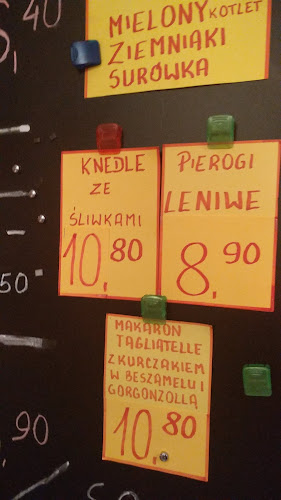 40
MIELONY KOTLET
ZIEMNIAKI
SURÓWKA
KNEDLE
ZE
ŚLIWKAMI
10,80
PIEROGI
LENIWE
8,90
50
MAKARON
TAGLIATELLE
Z KURCZAKIEM
W BESZAMELU I
GORGONZOLLĄ
10,80
90